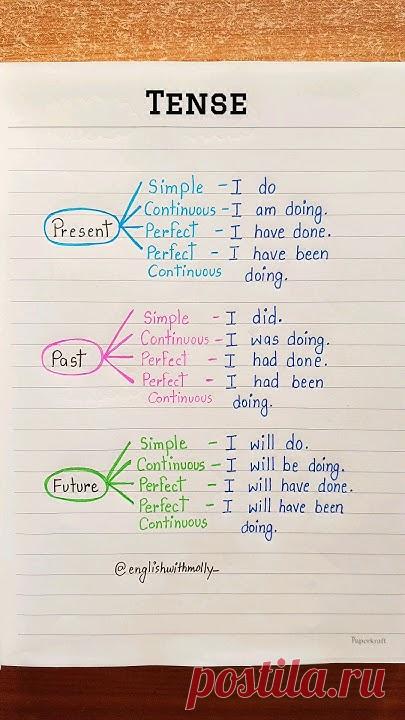 TENSE
Present
Simple - I do
Continuous - I am doing.
Perfect - I have done.
Perfect - I have been
Continuous doing.
Past
Simple - I did.
Continuous - I was doing.
Perfect - I had done.
Perfect - I had been
Continuous doing.
Future
Simple - I will do.
Continuous - I will be doing.
Perfect - I will have done.
Perfect - I will have been
Continuous doing.
@englishwithmolly_
Paperkraft
postila.ru